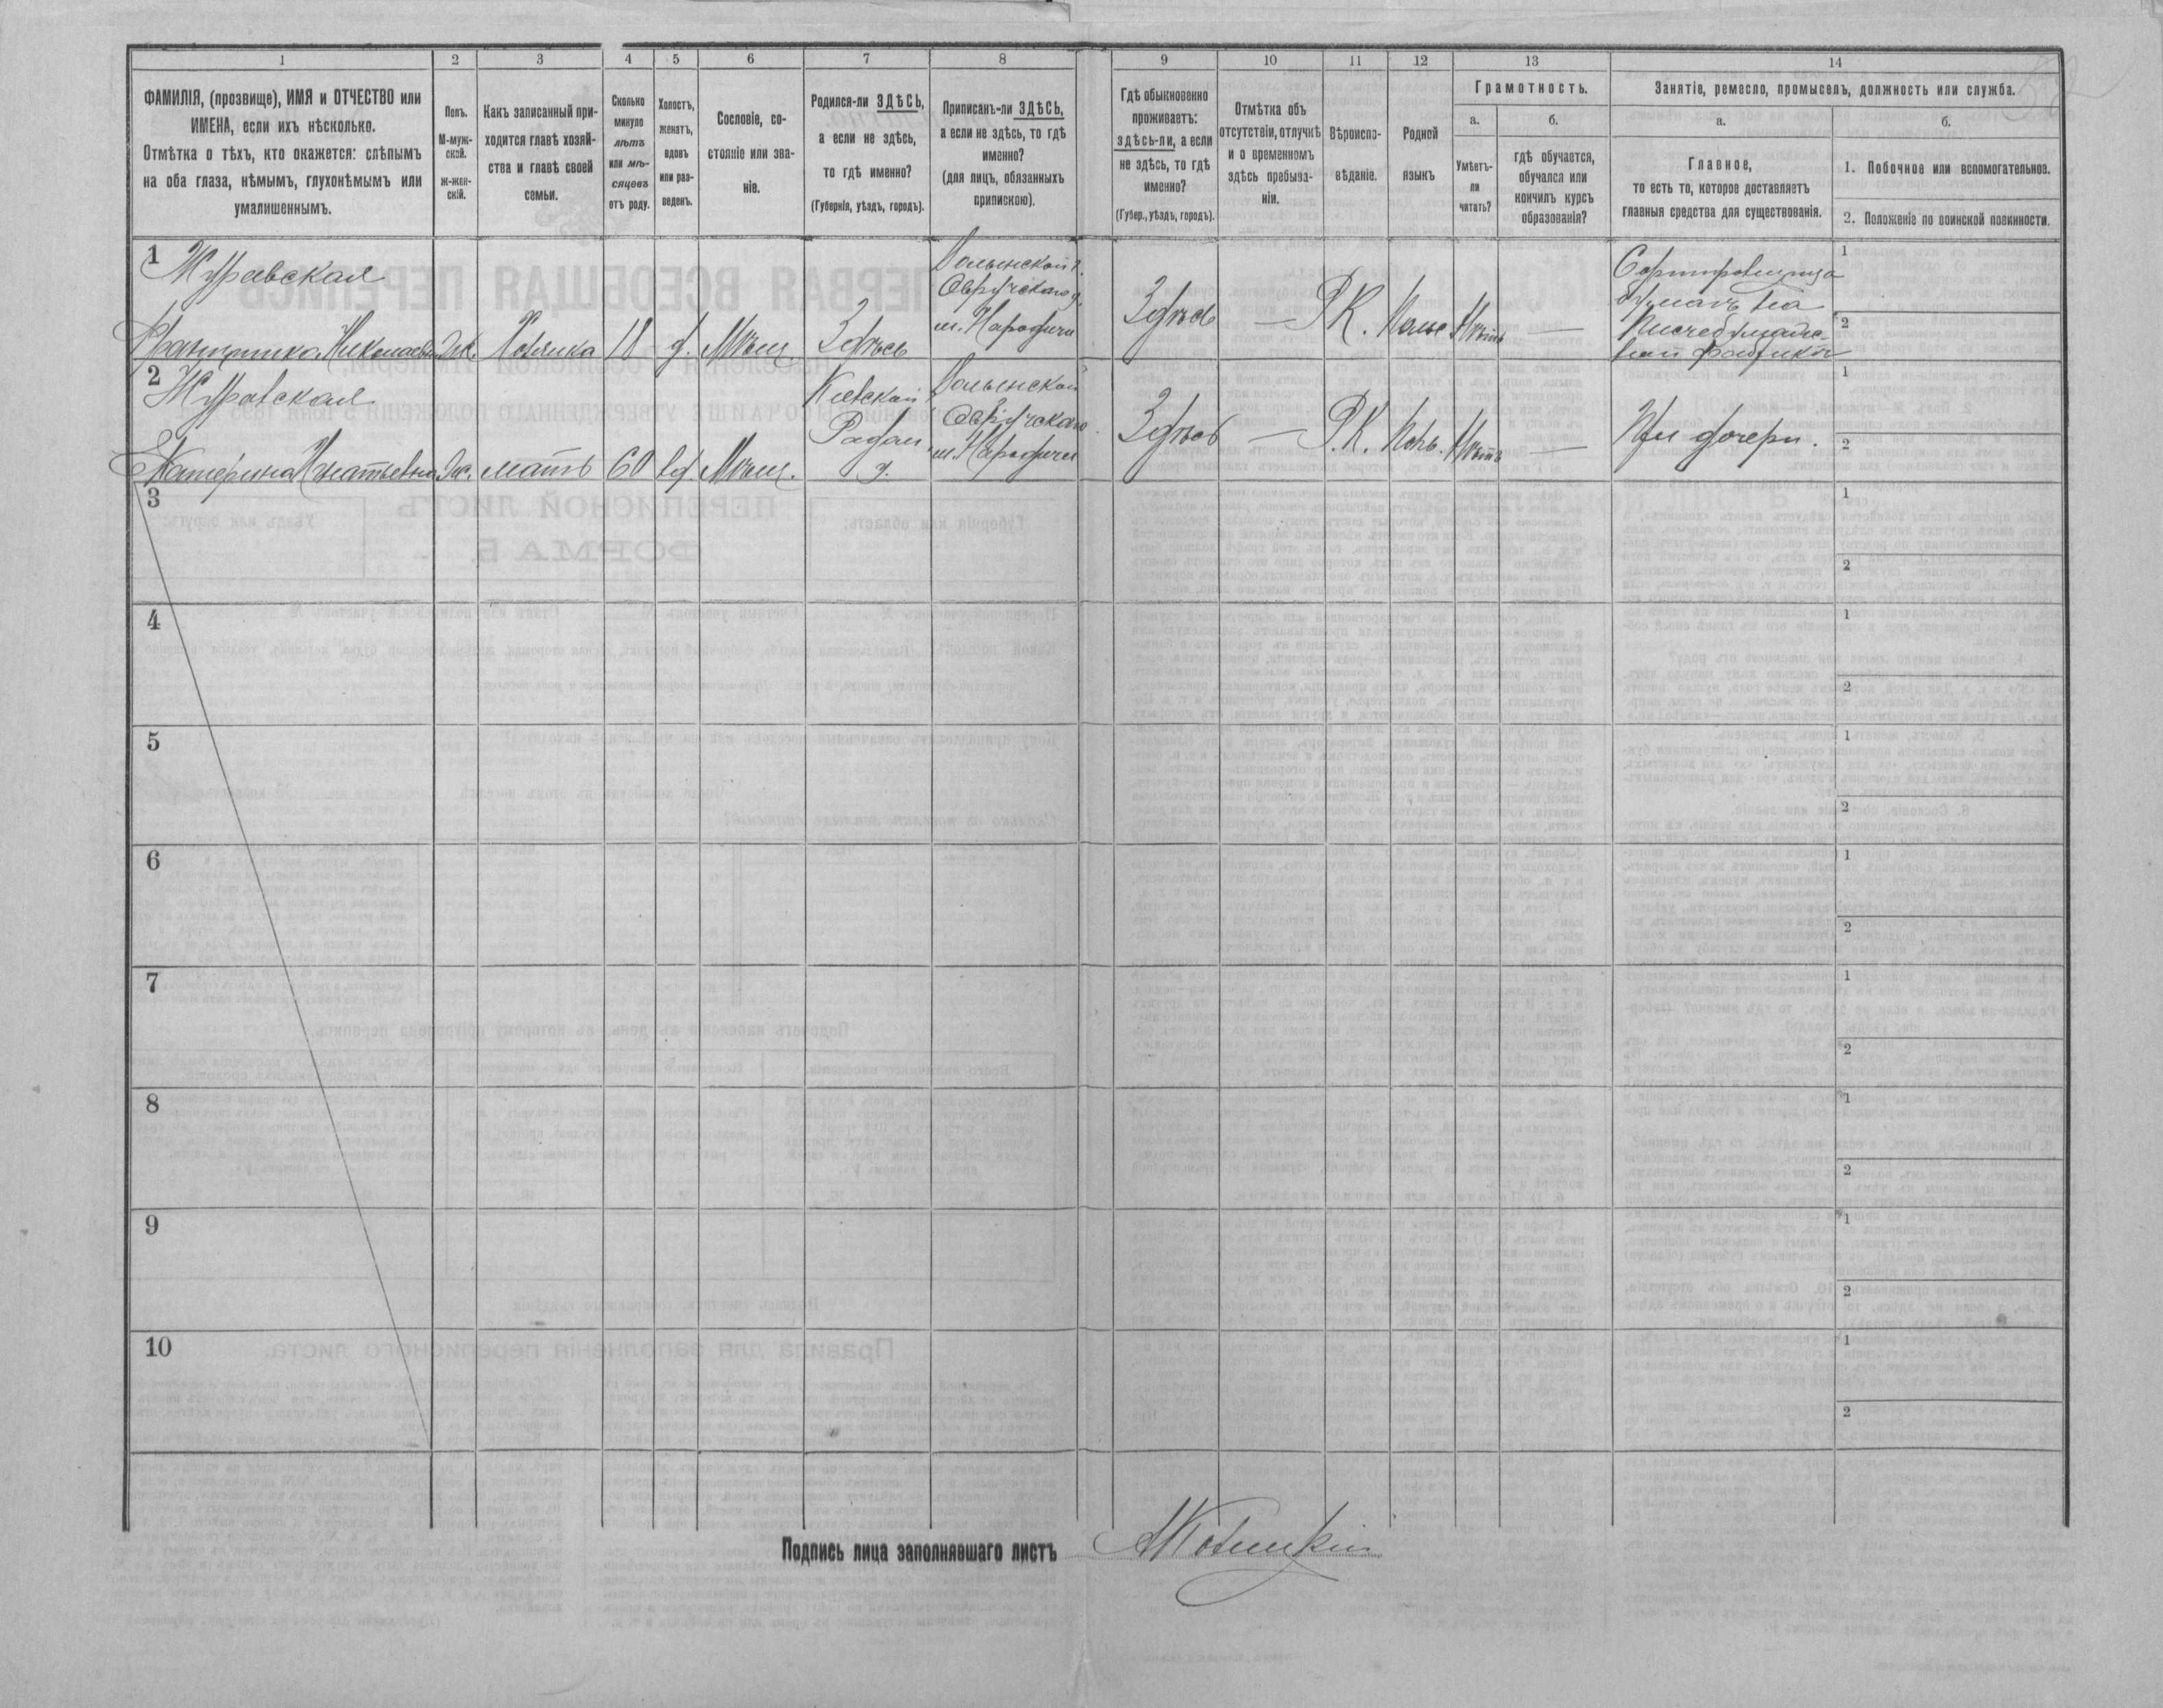 1 2 3 4 5 6 7 8 9 10 11 12 13 14
ФАМИЛІЯ, (прозвище), ИМЯ и ОТЧЕСТВО или
ИМЕНА, если ихъ нѣсколько.
Отмѣтка о тѣхъ, кто окажется: слѣпымъ
на оба глаза, нѣмымъ, глухонѣмымъ или
умалишеннымъ.
Полъ.
М-муж-
ской.
ж-жен-
скій.
Какъ записанный при-
ходится главѣ хозяй-
ства и главѣ своей
семьи.
Сколько
минуло
лѣтъ
или мѣ-
сяцевъ
отъ роду.
Холостъ,
женатъ,
вдовъ
или раз-
веденъ.
Сословіе, со-
стояніе или зва-
ніе.
Родился-ли ЗДѢСЬ,
а если не здѣсь,
то гдѣ именно?
(Губернія, уѣздъ, городъ).
Приписанъ-ли ЗДѢСЬ,
а если не здѣсь, то гдѣ
именно?
(для лицъ, обязанныхъ
припискою).
Гдѣ обыкновенно
проживаетъ:
здѣсь-ли, а если
не здѣсь, то гдѣ
именно?
(Губер., уѣздъ, городъ).
Отмѣтка объ
отсутствіи, отлучкѣ
и о временномъ
здѣсь пребыва-
ніи.
Вѣроиспо-
вѣданіе.
Родной
языкъ
Грамотность.
а.
Умѣетъ-
ли
читать?
б.
гдѣ обучается,
обучался или
кончилъ курсъ
образованія?
Занятіе, ремесло, промыселъ, должность или служба.
а.
Главное,
то есть то, которое доставляетъ
главныя средства для существованія.
б.
1. Побочное или вспомогательное.
2. Положеніе по воинской повинности.
1 Журавская
Волынской г.
Овручскаго у.
м. Народичи
Франтишка Николаевна Ж. Хозяйка 18 д. Мѣщ. Здѣсь
Здѣсь — Р.К. Польс. Нѣтъ —
Сортировщица
бумагъ на
Писчебумаж-
ной фабрикѣ
1
2
2 Журавская
Катерина Игнатьевна Ж. мать 60 вд. Мѣщ.
Кіевской г.
Радом.
у.
Волынской
Овручскаго
м. Народичи
Здѣсь — Р.К. Поль. Нѣтъ — При дочери.
1
2
3
1
2
4
1
2
5
1
2
6
1
2
7
1
2
8
1
2
9
1
2
10
1
2
Подпись лица заполнявшаго листъ